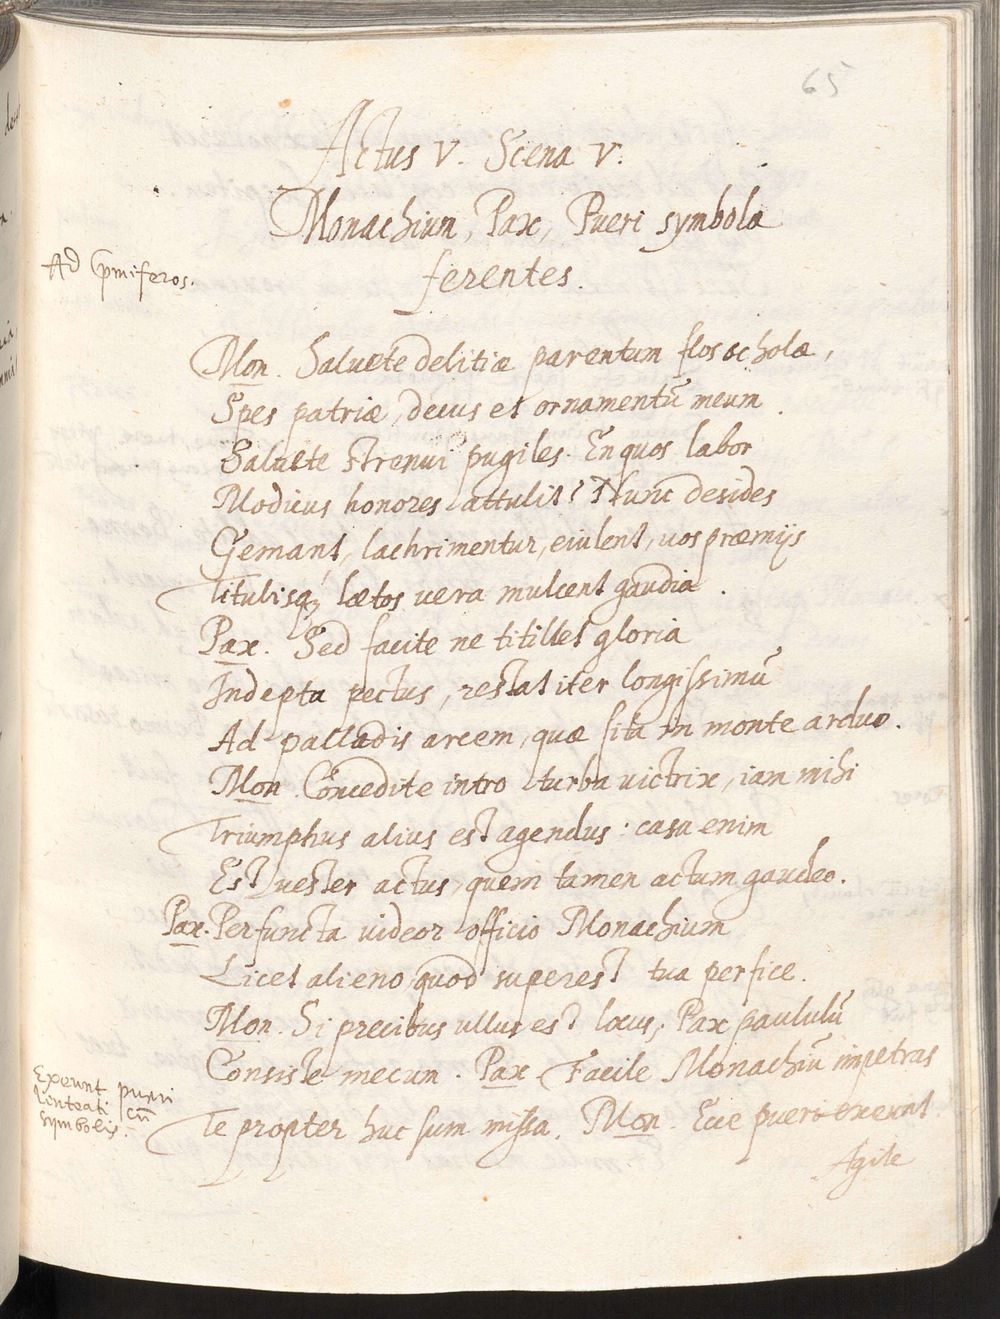 65
Actus V. Scena V.
Monachium, Pax, Pueri symbola
ferentes.
Ad pmiferos.
Mon. Saluete delitiæ parentum flos scholæ,
Spes patriæ, decus et ornamentū meum.
Saluete strenui pugiles. En quos labor
Modicus honores attulit? Nunc desides
Gemant, lachrimentur, eiulent, uos præmijs
Titulisq, lætos uera mulcent gaudia.
Pax. Sed facite ne titillet gloria
Indepta pectus, restat iter longissimū
Ad palladis arcem, quæ sita in monte arduo.
Mon. Concedite intro turba uictrix, iam mihi
Triumphus alius est agendus: casa enim
Est uester actus, quem tamen actum gaudeo.
Pax. Perfuncta uideor officio Monachium
Licet alieno, quod superest tua perfice.
Mon. Si precibus ullus est locus, Pax paululū
Consiste mecum. Pax. Facile Monachiū impetras
Te propter huc sum missa. Mon. Ecce pueri exeant.
Exeunt pueri
linteati cū
symbolis.
Agite